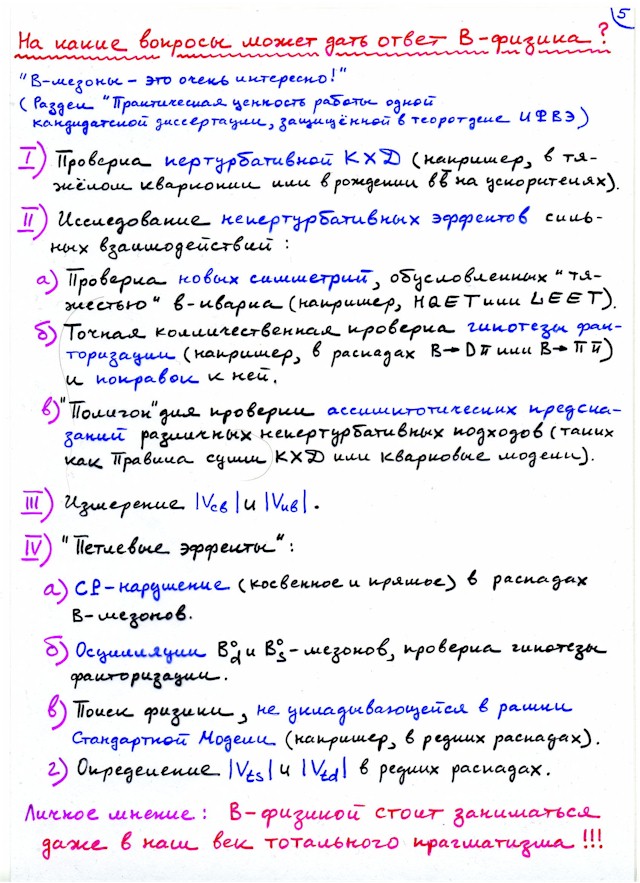 5
На какие вопросы может дать ответ B-физика?
"B-мезоны – это очень интересно!"
(Раздел "Практическая ценность работы одной
кандидатской диссертации, защищённой в теоротделе ИФВЭ)
I) Проверка пертурбативной КХД (например, в тя-
жёлом кварконии или в рождении b b̄ на ускорителях).
II) Исследование непертурбативных эффектов силь-
ных взаимодействий:
а) Проверка новых симметрий, обусловленных "тя-
жестью" b-кварка (например, HQET или LEET).
б) Точная колличественная проверка гипотезы фак-
торизации (например, в распадах B→Dπ или B→ππ)
и поправок к ней.
в) "Полигон" для проверки ассимптотических предска-
заний различных непертурбативных подходов (таких
как Правила сумм КХД или Кварковые модели).
III) Измерение |Vcb| и |Vub|.
IV) "Петлевые эффекты":
а) CP-нарушение (косвенное и прямое) в распадах
B-мезонов.
б) Осцилляции B⁰d и B⁰s-мезонов, проверка гипотезы
факторизации.
в) Поиск физики, не укладывающейся в рамки
Стандартной Модели (например, в редких распадах).
г) Определение |Vts| и |Vtd| в редких распадах.
Личное мнение: B-физикой стоит заниматься
даже в наш век тотального прагматизма!!!